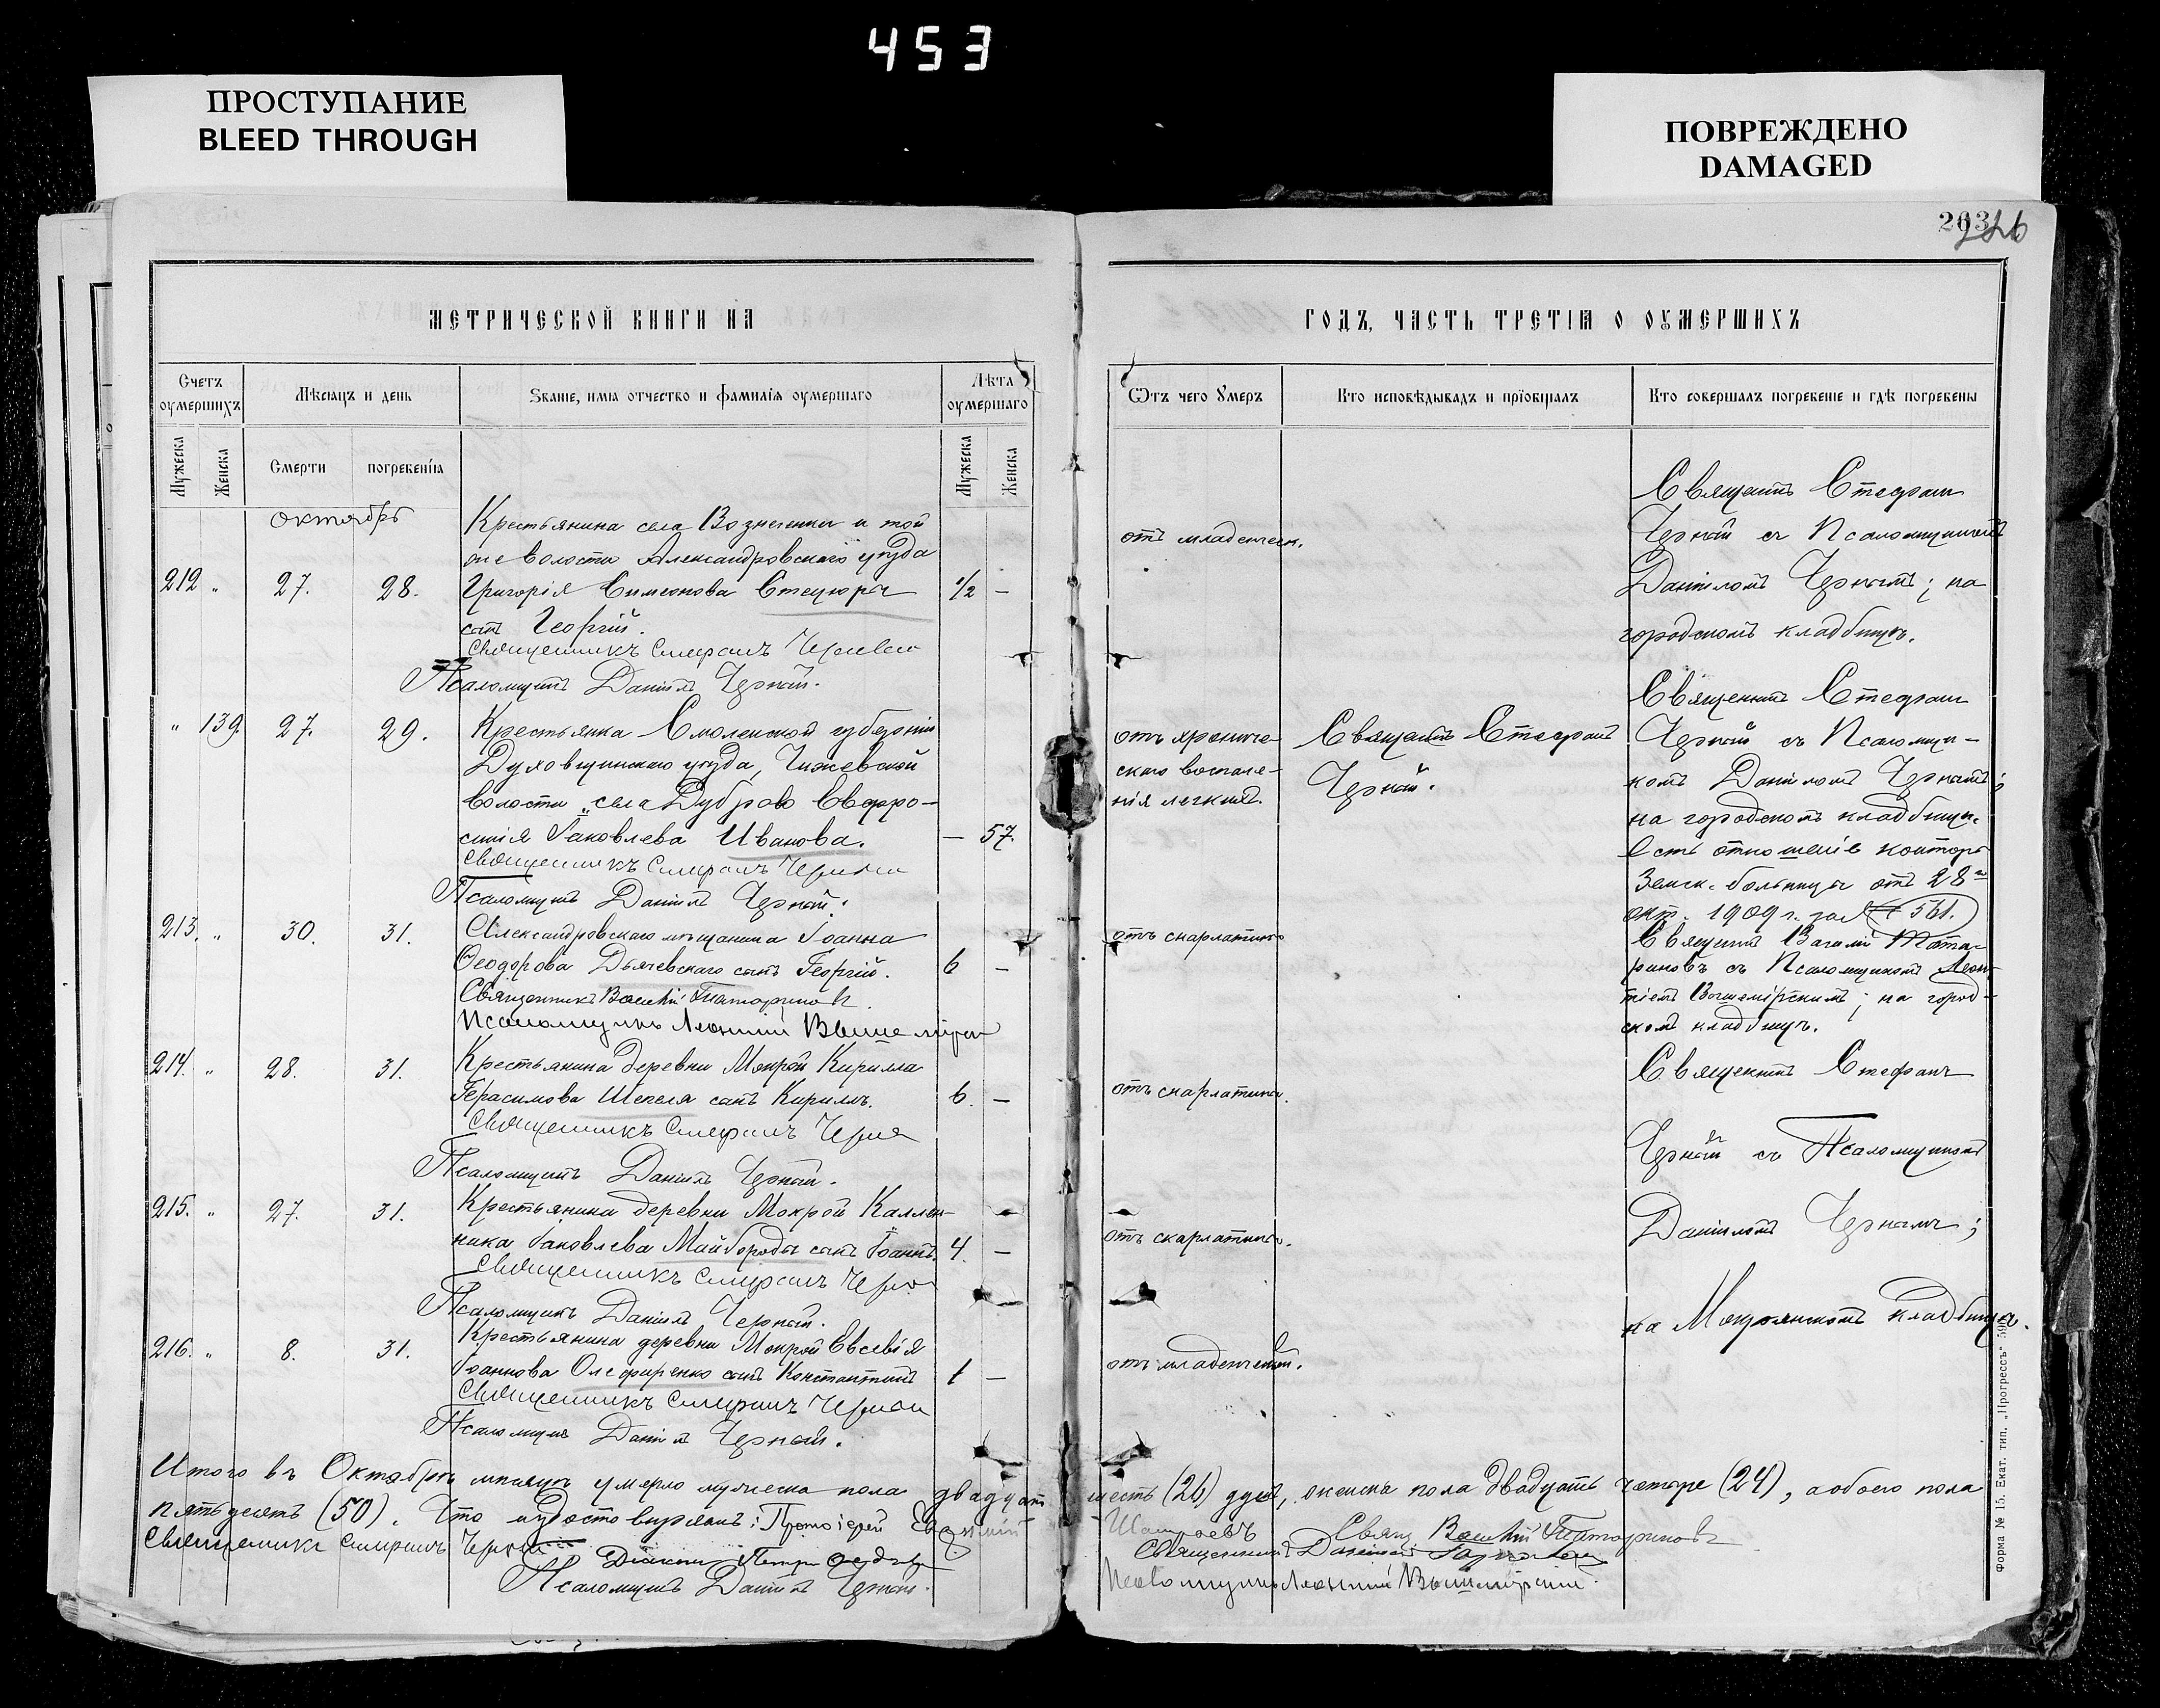 453
ПРОСТУПАНИЕ
BLEED THROUGH
ПОВРЕЖДЕНО
DAMAGED
203
226
МЕТРИЧЕСКОЙ КНИГИ НА
ГОДЪ, ЧАСТЬ ТРЕТІѦ О ОУМЕРШИХЪ
Счетъ оумершихъ
Мѣсяцъ и день
Званіе, имя отчество и фамилія оумершаго
Лѣта оумершаго
Ѿтъ чего Умеръ
Кто исповѣдывалъ и пріобщалъ
Кто совершалъ погребеніе и гдѣ погребены
Мужеска
Женска
Смерти
погребенія
Мужеска
Женска
Октябрь
Крестьянина села Вознесенки и той
же волости Александровскаго уѣзда
212 " 27. 28. Григорія Симеонова Стецюры 1/2 —
сынъ Георгій.
Священникъ Стефанъ Черный
Псаломщикъ Даніилъ Черный.
отъ младенческ.
Священникъ Стефанъ
Черный съ Псаломщикомъ
Даніиломъ Чернымъ; на
городскомъ кладбищѣ.
" 139. 27. 29. Крестьянка Смоленской губерніи
Духовщинскаго уѣзда, Чижевской
волости села Дуброво Евфро-
синія Іаковлева Иванова. — 57.
Священникъ Стефанъ Черный
Псаломщикъ Даніилъ Черный.
отъ хрониче-
скаго воспале-
нія легкихъ.
Священникъ Стефанъ
Черный.
Священникъ Стефанъ
Черный съ Псаломщи-
комъ Даніиломъ Чернымъ;
на городскомъ кладбищѣ.
Есть отношеніе конторы
Земск. больницы отъ 28го
окт. 1909 г. за № 561.
213. " 30. 31. Александровскаго мѣщанина Іоанна
Ѳеодорова Дьячевскаго сынъ Георгій. 6 —
Священникъ Василій Татариновъ
Псаломщикъ Леонтій Вышемірскій
отъ скарлатины
Священникъ Василій Тата-
риновъ съ Псаломщикомъ Леон-
тіемъ Вышемірскимъ; на город-
скомъ кладбищѣ.
214. " 28. 31. Крестьянина деревни Мокрой Кирилла
Герасимова Шепеля сынъ Кириллъ. 6. —
Священникъ Стефанъ Черный
Псаломщикъ Даніилъ Черный.
отъ скарлатины.
Священникъ Стефанъ
Черный съ Псаломщикомъ
Даніиломъ Чернымъ;
на Мокрянскомъ кладбищѣ.
215. " 27. 31. Крестьянина деревни Мокрой Каллин-
ника Іаковлева Майбороды сынъ Іоаннъ. 4. —
Священникъ Стефанъ Черный
Псаломщикъ Даніилъ Черный.
отъ скарлатины.
216. " 8. 31. Крестьянина деревни Мокрой Евсевія
Іоаннова Олефиренко сынъ Константинъ 1 —
Священникъ Стефанъ Черный
Псаломщикъ Даніилъ Черный.
отъ младенческой.
Итого въ Октябрѣ мѣсяцѣ умерло мужеска пола двадцать шесть (26) душъ, женска пола двадцать четыре (24), а обоего пола
пятьдесятъ (50). Что удостовѣряемъ: Протоіерей Евгеній
Свящ. Василій Татариновъ
Священникъ Стефанъ Черный
Священникъ
Діаконъ Петръ
Псаломщикъ Даніилъ Черный.
Псаломщикъ Леонтій Вышемірскій.
Форма № 15. Екат. тип. „Прогрессъ"